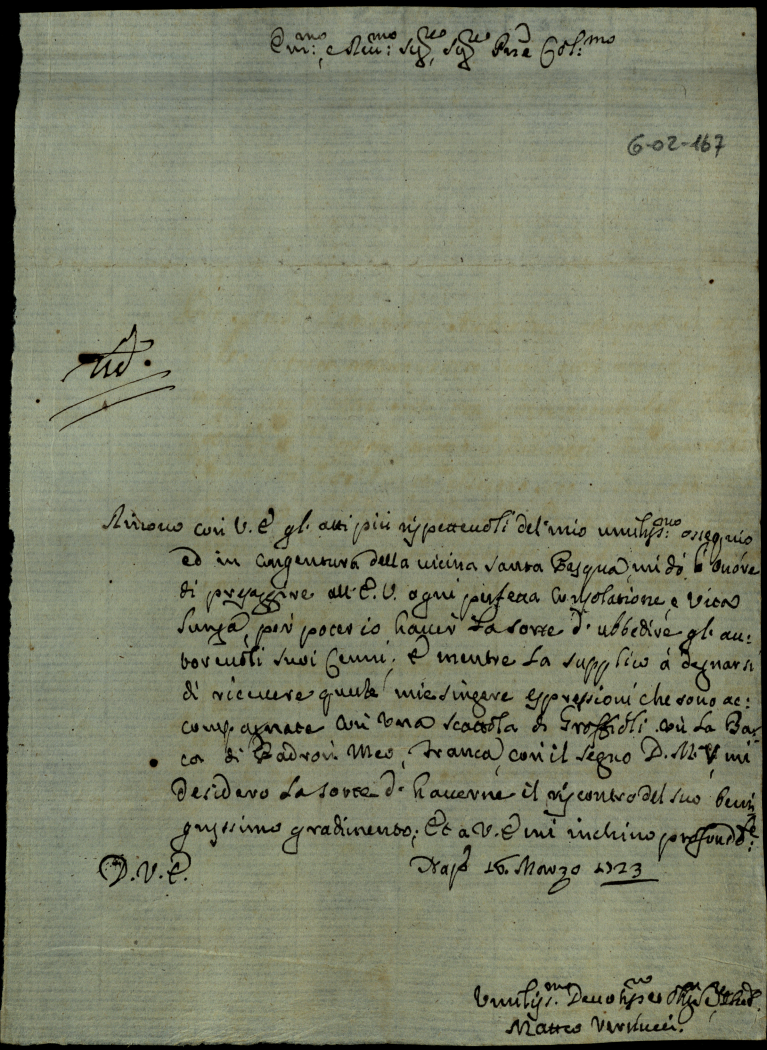 Em:mo, e Reu:mo Sig:re, Sig:re Pne Col:mo
6-02-167
Rinouo con V. E. gl' atti più rispetteuoli del mio umiliss:mo ossequio
ed in congentura della uicina Santa Pasqua, mi dò l'onore
di presaggire all' E. V. ogni perfetta consolatione, e uita
lunga, per poter io hauer la sorte d' ubbedire gl' au:
toreuoli suoi Cenni; E mentre la supplico à degnarsi
di riceuere queste mie singere espressioni che sono ac:
compagnate con una scattola di Groffioli con la Bar:
ca di Padron Meo, franca, con il segno D. M. V. mi
desidero la sorte d' hauerne il riscontro del suo beni
gnissimo gradimento; Et a V. E. mi inchino profond:te
D. V. E. Nap. 16. Marzo 1723
Umiliss:mo Deuotiss:mo
Matteo Verilucci.